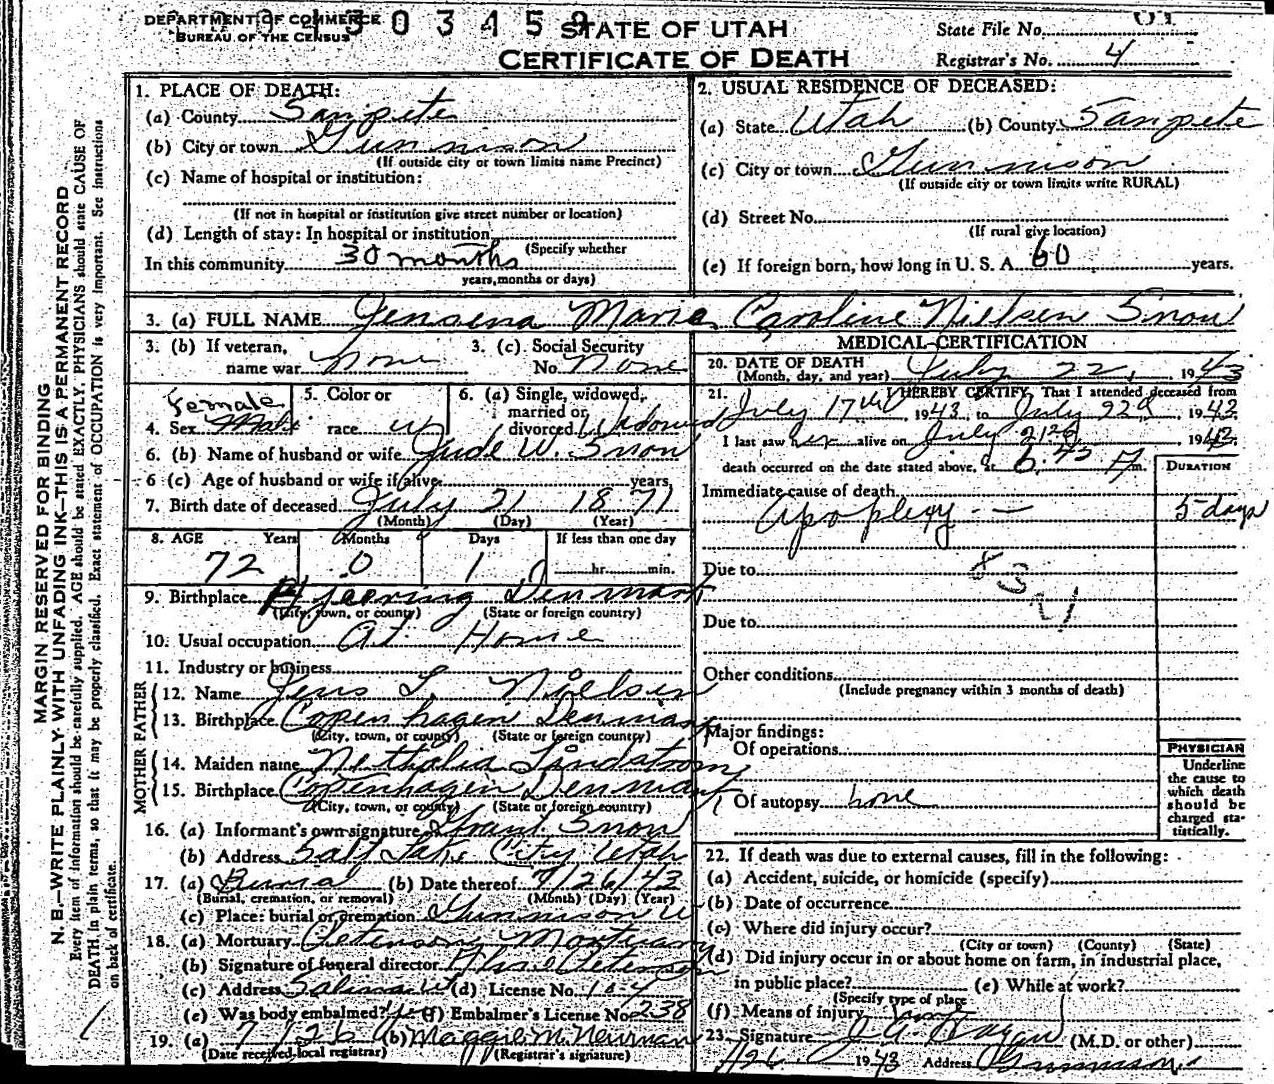 DEPARTMENT OF COMMERCE
BUREAU OF THE CENSUS
3 0 3 4 5 9
STATE OF UTAH
CERTIFICATE OF DEATH
State File No.
Registrar's No. 4
MARGIN RESERVED FOR BINDING
N. B.—WRITE PLAINLY WITH UNFADING INK—THIS IS A PERMANENT RECORD
Every item of information should be carefully supplied. AGE should be stated EXACTLY. PHYSICIANS should state CAUSE OF
DEATH in plain terms, so that it may be properly classified. Exact statement of OCCUPATION is very important. See instructions
on back of certificate.
1. PLACE OF DEATH:
(a) County Sanpete
(b) City or town Gunnison
(If outside city or town limits name Precinct)
(c) Name of hospital or institution:
(If not in hospital or institution give street number or location)
(d) Length of stay: In hospital or institution
(Specify whether
In this community 30 months
years, months or days)
2. USUAL RESIDENCE OF DECEASED:
(a) State Utah (b) County Sanpete
(c) City or town Gunnison
(If outside city or town limits write RURAL)
(d) Street No.
(If rural give location)
(e) If foreign born, how long in U. S. A. 60 years.
3. (a) FULL NAME Jensena Marie Caroline Nielsen Snow
3. (b) If veteran,
name war none
3. (c) Social Security
No. None
Female
4. Sex Male
5. Color or
race W
6. (a) Single, widowed,
married or
divorced Widowed
6. (b) Name of husband or wife Jude W. Snow
6 (c) Age of husband or wife if alive years
7. Birth date of deceased July 21 1871
(Month) (Day) (Year)
8. AGE Years Months Days If less than one day
72 0 1 hr. min.
9. Birthplace Hjoerring Denmark
(City, town, or county) (State or foreign country)
10. Usual occupation At Home
11. Industry or business
FATHER
12. Name Jens L. Nielsen
13. Birthplace Copenhagen Denmark
(City, town, or county) (State or foreign country)
MOTHER
14. Maiden name Nethalia Lindstrom
15. Birthplace Copenhagen Denmark
(City, town, or county) (State or foreign country)
16. (a) Informant's own signature Grant Snow
(b) Address Salt Lake City Utah
17. (a) Burial (b) Date thereof 7/26/43
(Burial, cremation, or removal) (Month) (Day) (Year)
(c) Place: burial or cremation Gunnison U
18. (a) Mortuary Petersons Mortuary
(b) Signature of funeral director Petersen
(c) Address Salina U (d) License No. 10-4
(e) Was body embalmed? (f) Embalmer's License No. 238
19. (a) 7/26 (b) Maggie M. Newman
(Date received local registrar) (Registrar's signature)
MEDICAL CERTIFICATION
20. DATE OF DEATH
(Month, day, and year) July 22, 1943
21. I HEREBY CERTIFY, That I attended deceased from
July 17th 1943 to July 22d 1943.
I last saw her alive on July 21st 1943.
death occurred on the date stated above, at 6:45 m.
DURATION
Immediate cause of death
Apoplexy 5 days
Due to
83 21
Due to
Other conditions
(Include pregnancy within 3 months of death)
Major findings:
Of operations
Of autopsy none
PHYSICIAN
Underline
the cause to
which death
should be
charged sta-
tistically.
22. If death was due to external causes, fill in the following:
(a) Accident, suicide, or homicide (specify)
(b) Date of occurrence
(c) Where did injury occur?
(City or town) (County) (State)
(d) Did injury occur in or about home on farm, in industrial place,
in public place? (e) While at work?
(Specify type of place
(f) Means of injury
23. Signature J. G. Hagan (M.D. or other)
7/26 1943 Address Gunnison